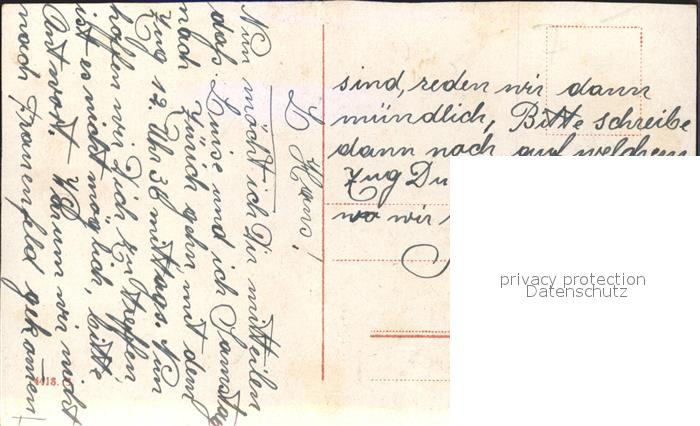 L Hans!
Nun möcht ich Dir mitteilen
das Luise und ich Samstag
nach Zürich gehn mit dem
Zug 12 Uhr 36 mittags. Nun
hoffen wir Dich zu treffen
ist es nicht möglich, bitte
Antwort. Warum wir nicht
nach Frauenfeld gekomen
sind, reden wir dann
mündlich, Bitte schreibe
dann noch auf welchem
Zug Du
wo wir
privacy protection
Datenschutz